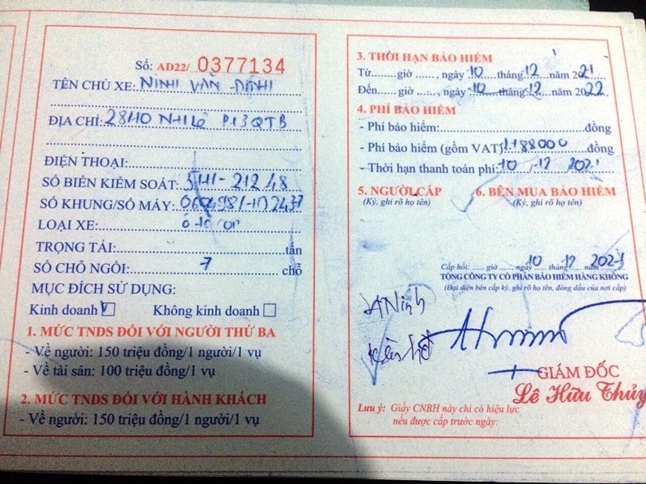 Số: AD22/ 0377134
TÊN CHỦ XE: NINH VĂN ĐÍNH
ĐỊA CHỈ: P13 QTB
ĐIỆN THOẠI:
SỐ BIỂN KIỂM SOÁT: 51H-212.48
SỐ KHUNG/SỐ MÁY:
LOẠI XE:
TRỌNG TẢI: tấn
SỐ CHỖ NGỒI: 7 chỗ
MỤC ĐÍCH SỬ DỤNG:
Kinh doanh Không kinh doanh
1. MỨC TNDS ĐỐI VỚI NGƯỜI THỨ BA
- Về người: 150 triệu đồng/1 người/1 vụ
- Về tài sản: 100 triệu đồng/1 vụ
2. MỨC TNDS ĐỐI VỚI HÀNH KHÁCH
- Về người: 150 triệu đồng/1 người/1 vụ
3. THỜI HẠN BẢO HIỂM
Từ......giờ ......, ngày 10 tháng 12 năm 2021
Đến......giờ ......, ngày 10 tháng 12 năm 2022
4. PHÍ BẢO HIỂM
- Phí bảo hiểm: đồng
- Phí bảo hiểm (gồm VAT): 1188000 đồng
- Thời hạn thanh toán phí: 10 - 12 - 2021
5. NGƯỜI CẤP 6. BÊN MUA BẢO HIỂM
(Ký, ghi rõ họ tên) (Ký, ghi rõ họ tên)
Cấp hồi: ...... giờ ...... ngày 10 tháng 12 năm 2021
TỔNG CÔNG TY CỔ PHẦN BẢO HIỂM HÀNG KHÔNG
(Đại diện bên cấp ký, ghi rõ họ tên, đóng dấu của nơi cấp)
A Ninh
GIÁM ĐỐC
Lê Hữu Thủy
Lưu ý: Giấy CNBH này chỉ có hiệu lực
nếu được cấp trước ngày: